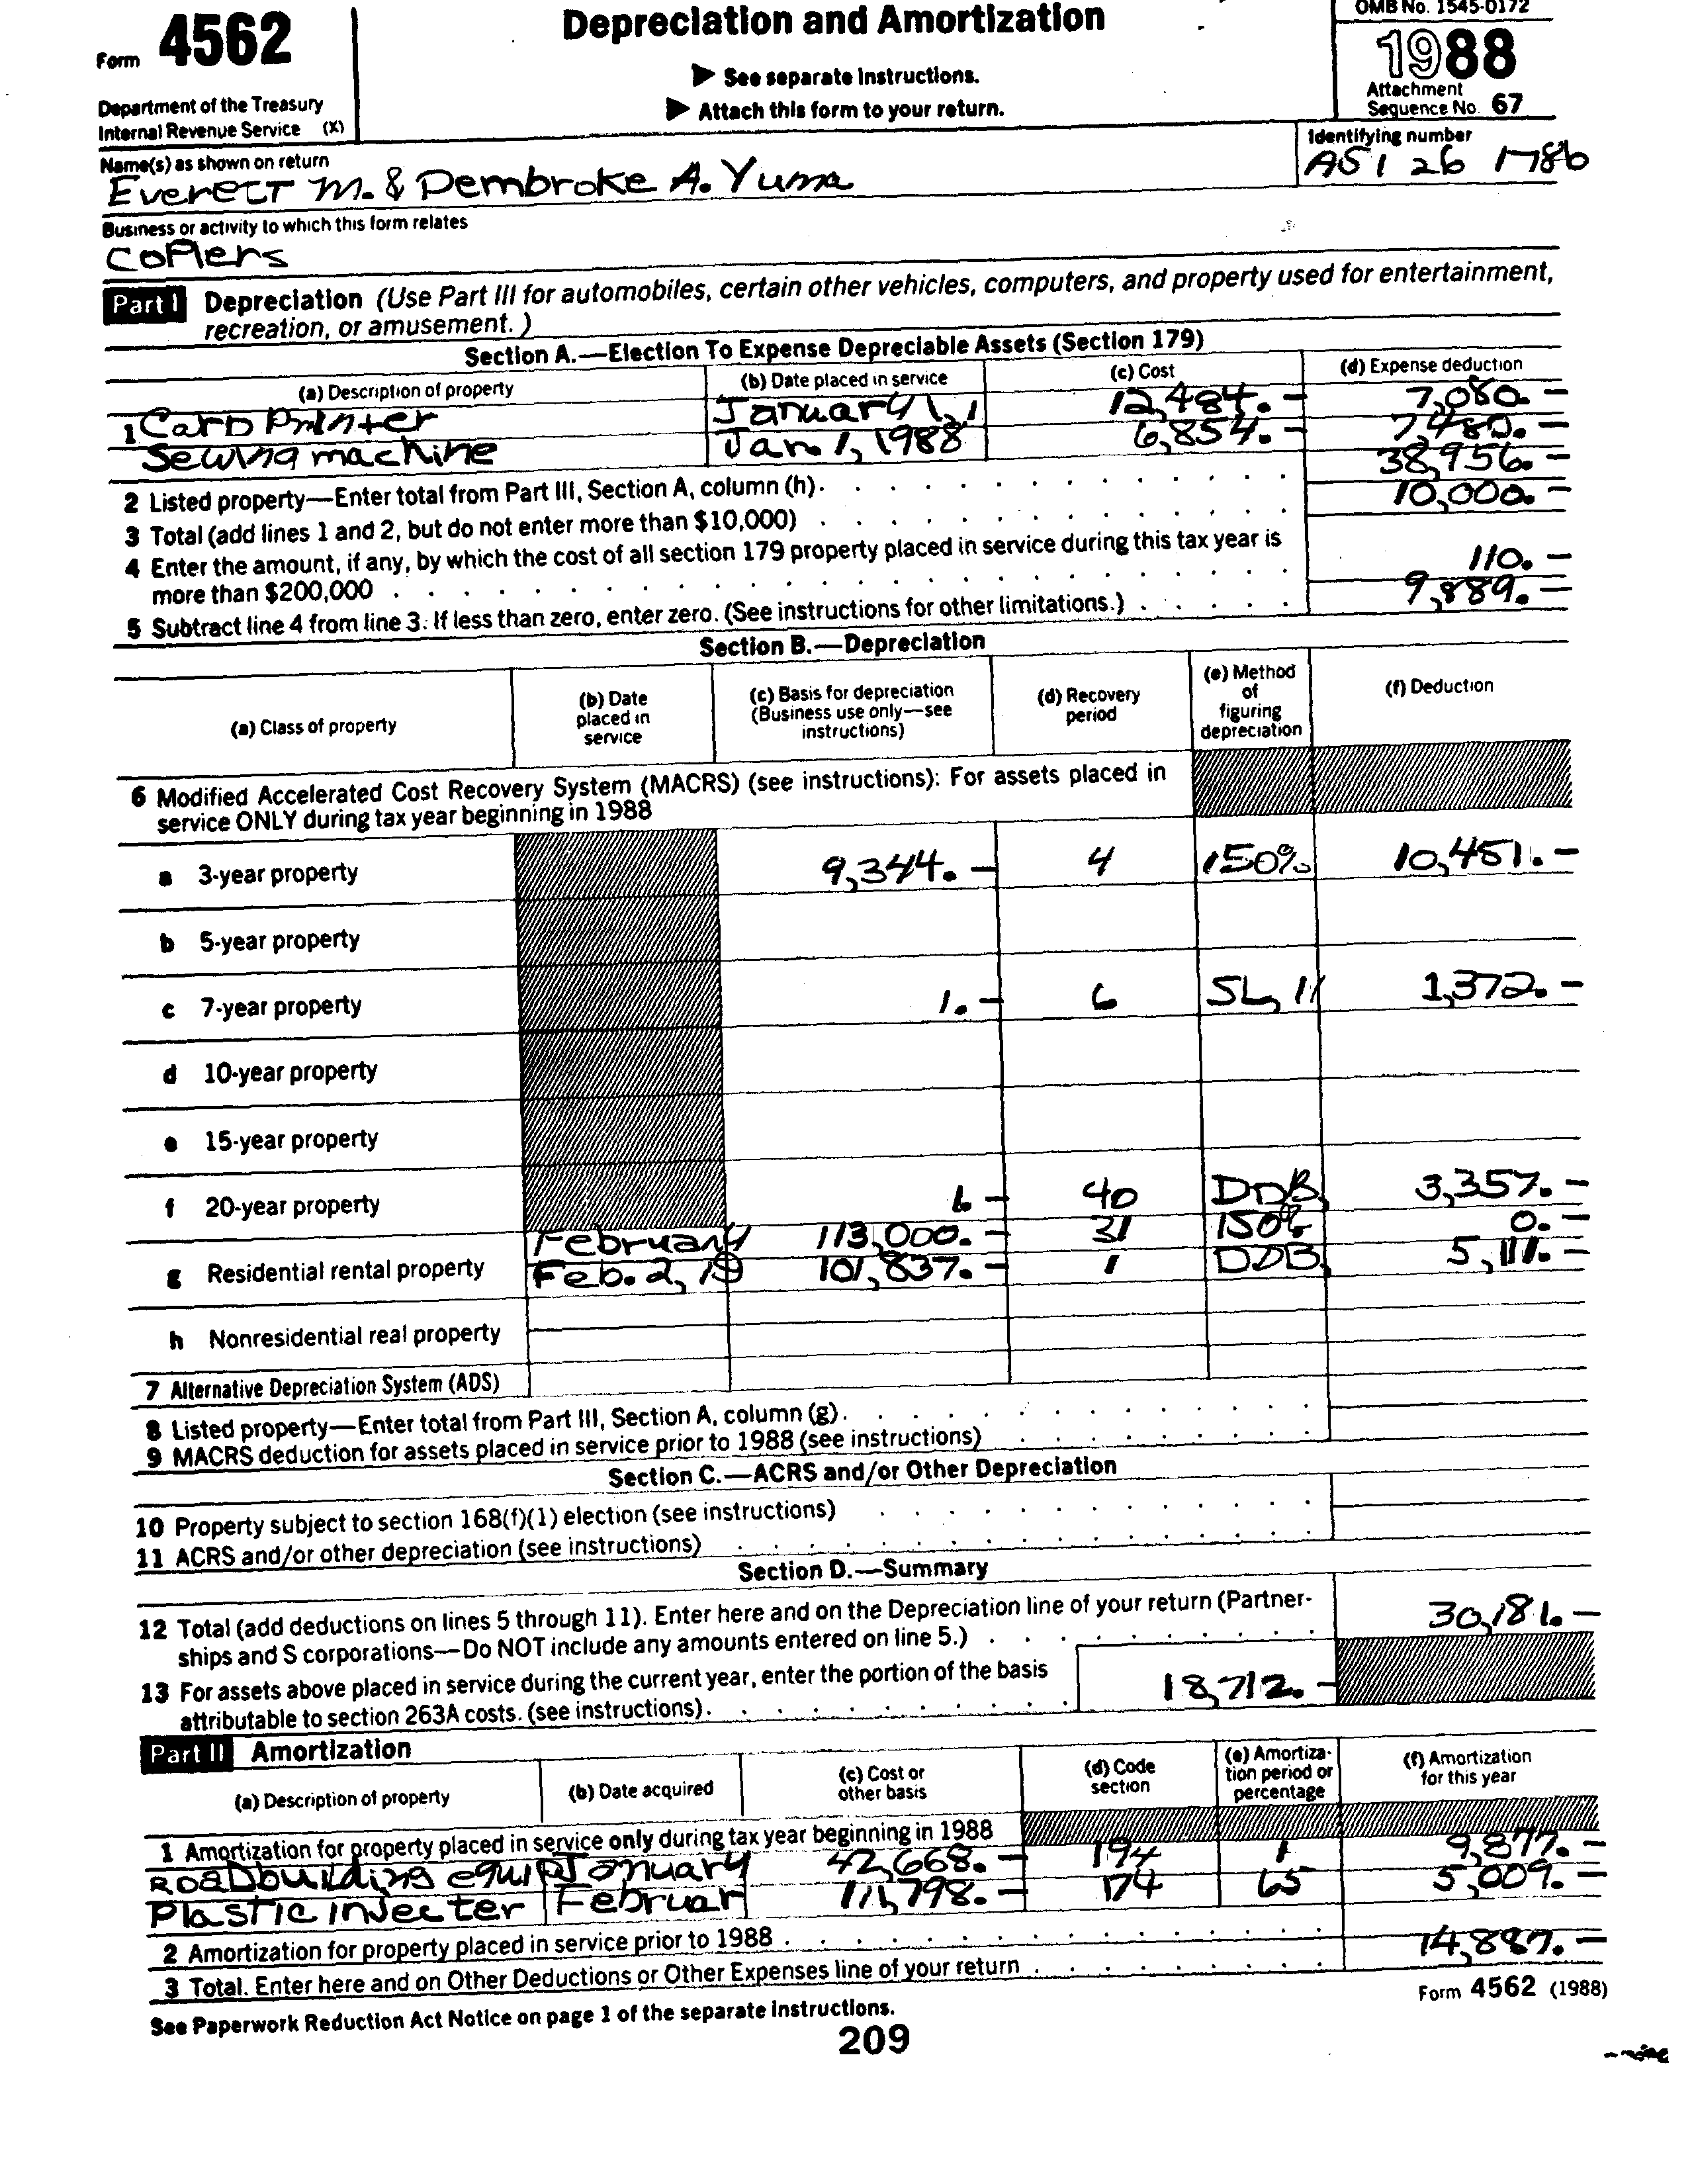 Form 4562
Depreciation and Amortization
OMB No. 1545-0172
1988
► See separate instructions.
► Attach this form to your return.
Department of the Treasury
Internal Revenue Service (X)
Attachment
Sequence No. 67
Name(s) as shown on return
Everett M. & Pembroke A. Yuma
Identifying number
A51 26 1786
Business or activity to which this form relates
Copiers
Part I Depreciation (Use Part III for automobiles, certain other vehicles, computers, and property used for entertainment,
recreation, or amusement.)
Section A.—Election To Expense Depreciable Assets (Section 179)
(a) Description of property (b) Date placed in service (c) Cost (d) Expense deduction
1 Card Printer January 1, 1 12,484. - 7,080. -
Sewing machine Jan. 1, 1988 6,854. - 7,480. -
2 Listed property—Enter total from Part III, Section A, column (h). 38,956. -
3 Total (add lines 1 and 2, but do not enter more than $10,000) 10,000. -
4 Enter the amount, if any, by which the cost of all section 179 property placed in service during this tax year is
more than $200,000 110. -
5 Subtract line 4 from line 3. If less than zero, enter zero. (See instructions for other limitations.) 9,889. -
Section B.—Depreciation
(a) Class of property (b) Date placed in service (c) Basis for depreciation (Business use only—see instructions) (d) Recovery period (e) Method of figuring depreciation (f) Deduction
6 Modified Accelerated Cost Recovery System (MACRS) (see instructions): For assets placed in
service ONLY during tax year beginning in 1988
a 3-year property 9,344. - 4 150% 10,451. -
b 5-year property
c 7-year property 1. - 6 SL, 11 1,372. -
d 10-year property
e 15-year property
f 20-year property 6 - 40 DDB, 3,357. -
February 113,000. - 31 150% 0. -
g Residential rental property Feb. 2, 19 101,837. - 1 DDB, 5,111. -
h Nonresidential real property
7 Alternative Depreciation System (ADS)
8 Listed property—Enter total from Part III, Section A, column (g).
9 MACRS deduction for assets placed in service prior to 1988 (see instructions)
Section C.—ACRS and/or Other Depreciation
10 Property subject to section 168(f)(1) election (see instructions)
11 ACRS and/or other depreciation (see instructions)
Section D.—Summary
12 Total (add deductions on lines 5 through 11). Enter here and on the Depreciation line of your return (Partner-
ships and S corporations—Do NOT include any amounts entered on line 5.) 30,181. -
13 For assets above placed in service during the current year, enter the portion of the basis
attributable to section 263A costs. (see instructions). 18,712. -
Part II Amortization
(a) Description of property (b) Date acquired (c) Cost or other basis (d) Code section (e) Amortiza-tion period or percentage (f) Amortization for this year
1 Amortization for property placed in service only during tax year beginning in 1988
Roadbuilding equip January 42,668. - 194 1 9,877. -
Plastic injecter Februar 111,798. - 174 65 5,009. -
2 Amortization for property placed in service prior to 1988
3 Total. Enter here and on Other Deductions or Other Expenses line of your return 14,887. -
See Paperwork Reduction Act Notice on page 1 of the separate instructions.
Form 4562 (1988)
209